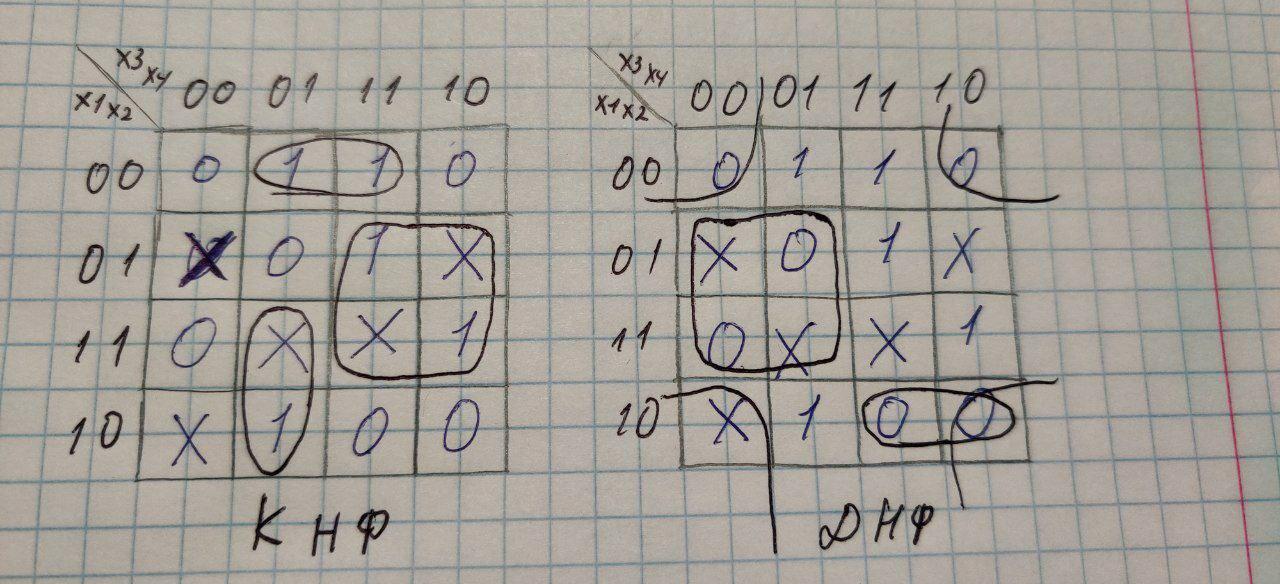 x3x4 00 01 11 10
x1x2
00 0 1 1 0
01 X 0 1 X
11 0 X X 1
10 X 1 0 0
КНФ
x3x4 00 01 11 10
x1x2
00 0 1 1 0
01 X 0 1 X
11 0 X X 1
10 X 1 0 0
ДНФ